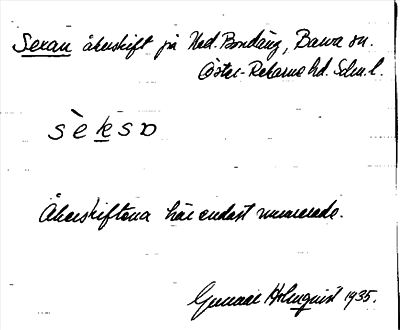 Sexan åkerskift på Ned. Bondäng, Barva sn.
Öster-Rekarne hd. Sdm. l.
sèksɒ
Åkerskiftena här endast numrerade.
Gunnar Holmquist 1935.